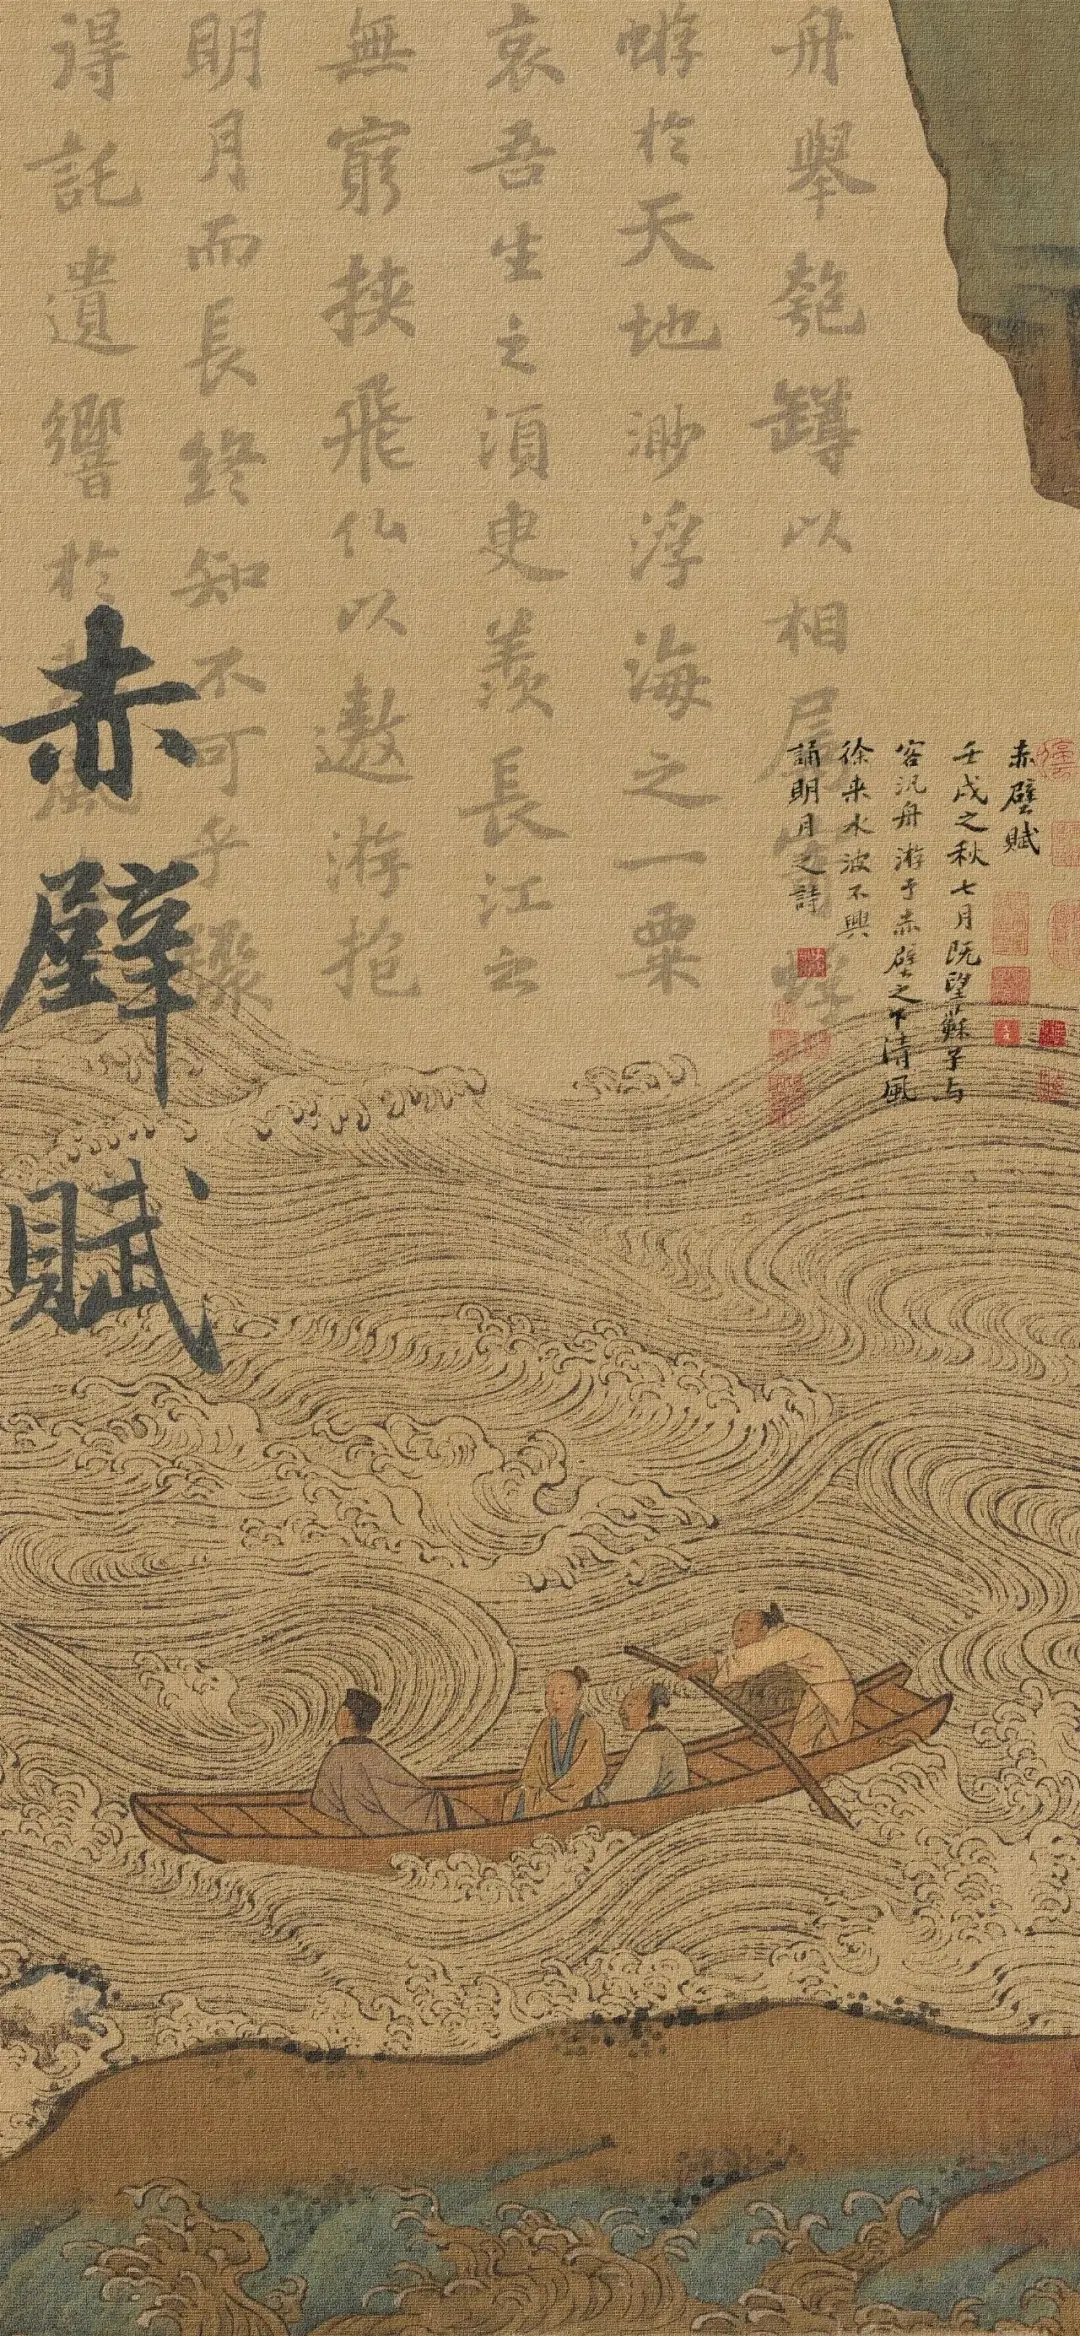 舟舉匏罇以相屬寄蜉
蝣於天地渺浮海之一粟
哀吾生之須臾羨長江之
無窮挾飛仙以遨游抱
明月而長終知不可乎驟
得託遺響於悲風
赤壁賦
壬戌之秋七月既望蘇子与
客汎舟游于赤壁之下清風
徐来水波不興
誦明月之詩
赤壁賦